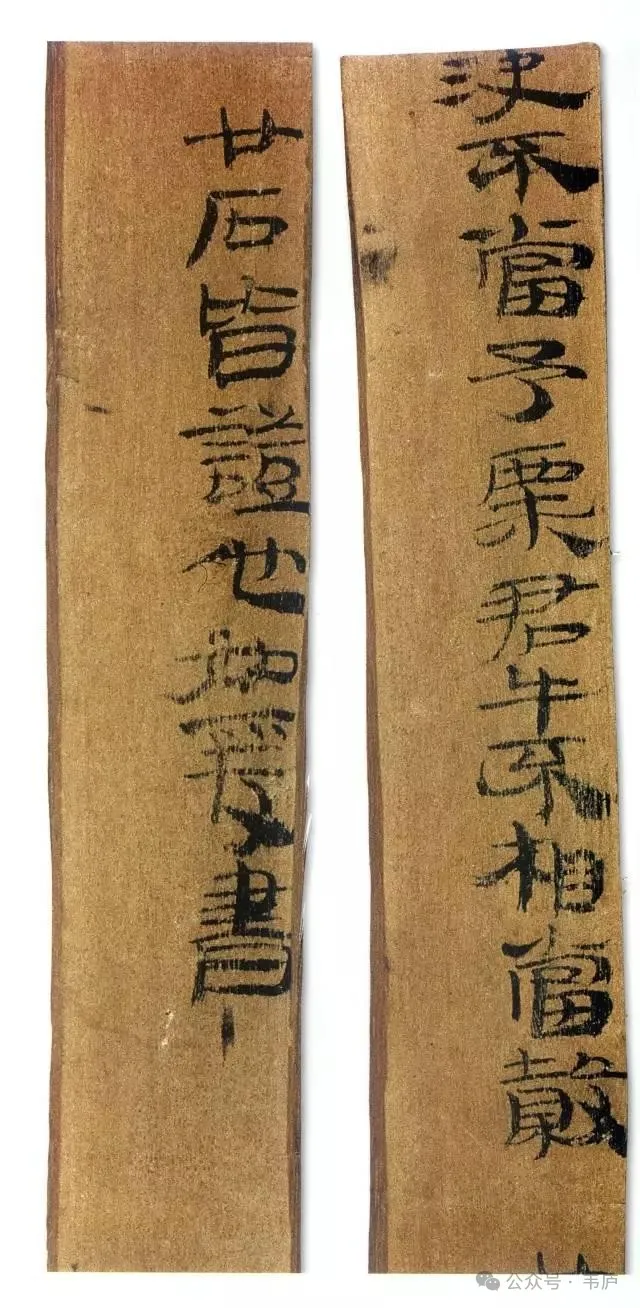 決不當予粟君牛不相當穀
廿石皆證它如爰書
公众号·韦庐